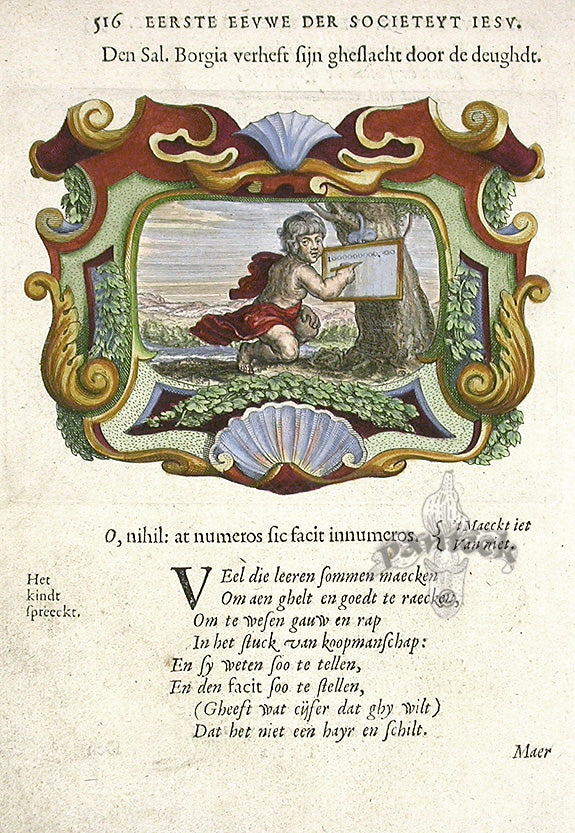 516 EERSTE EEVWE DER SOCIETEYT IESV.
Den Sal. Borgia verheft sijn gheslacht door de deughdt.
1000000000.00
O, nihil: at numeros sic facit innumeros. { 't Maeckt iet
Van niet.
Het
kindt
spreeckt.
VEel die leeren sommen maecken
Om aen ghelt en goedt te raecken,
Om te wesen gauw en rap
In het stuck van koopmanschap:
En sy weten soo te tellen,
En den facit soo te stellen,
(Gheeft wat cijfer dat ghy wilt)
Dat het niet een hayr en schilt.
Maer
PANTEEK